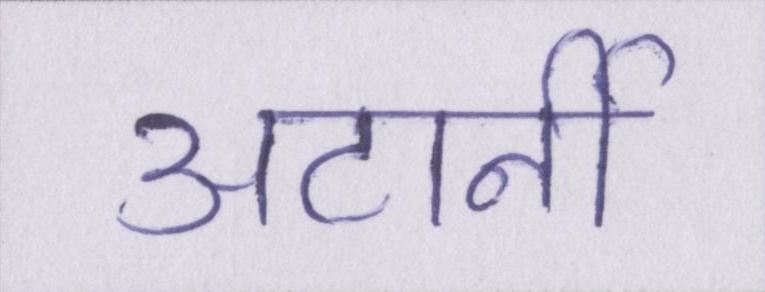 अटार्नी